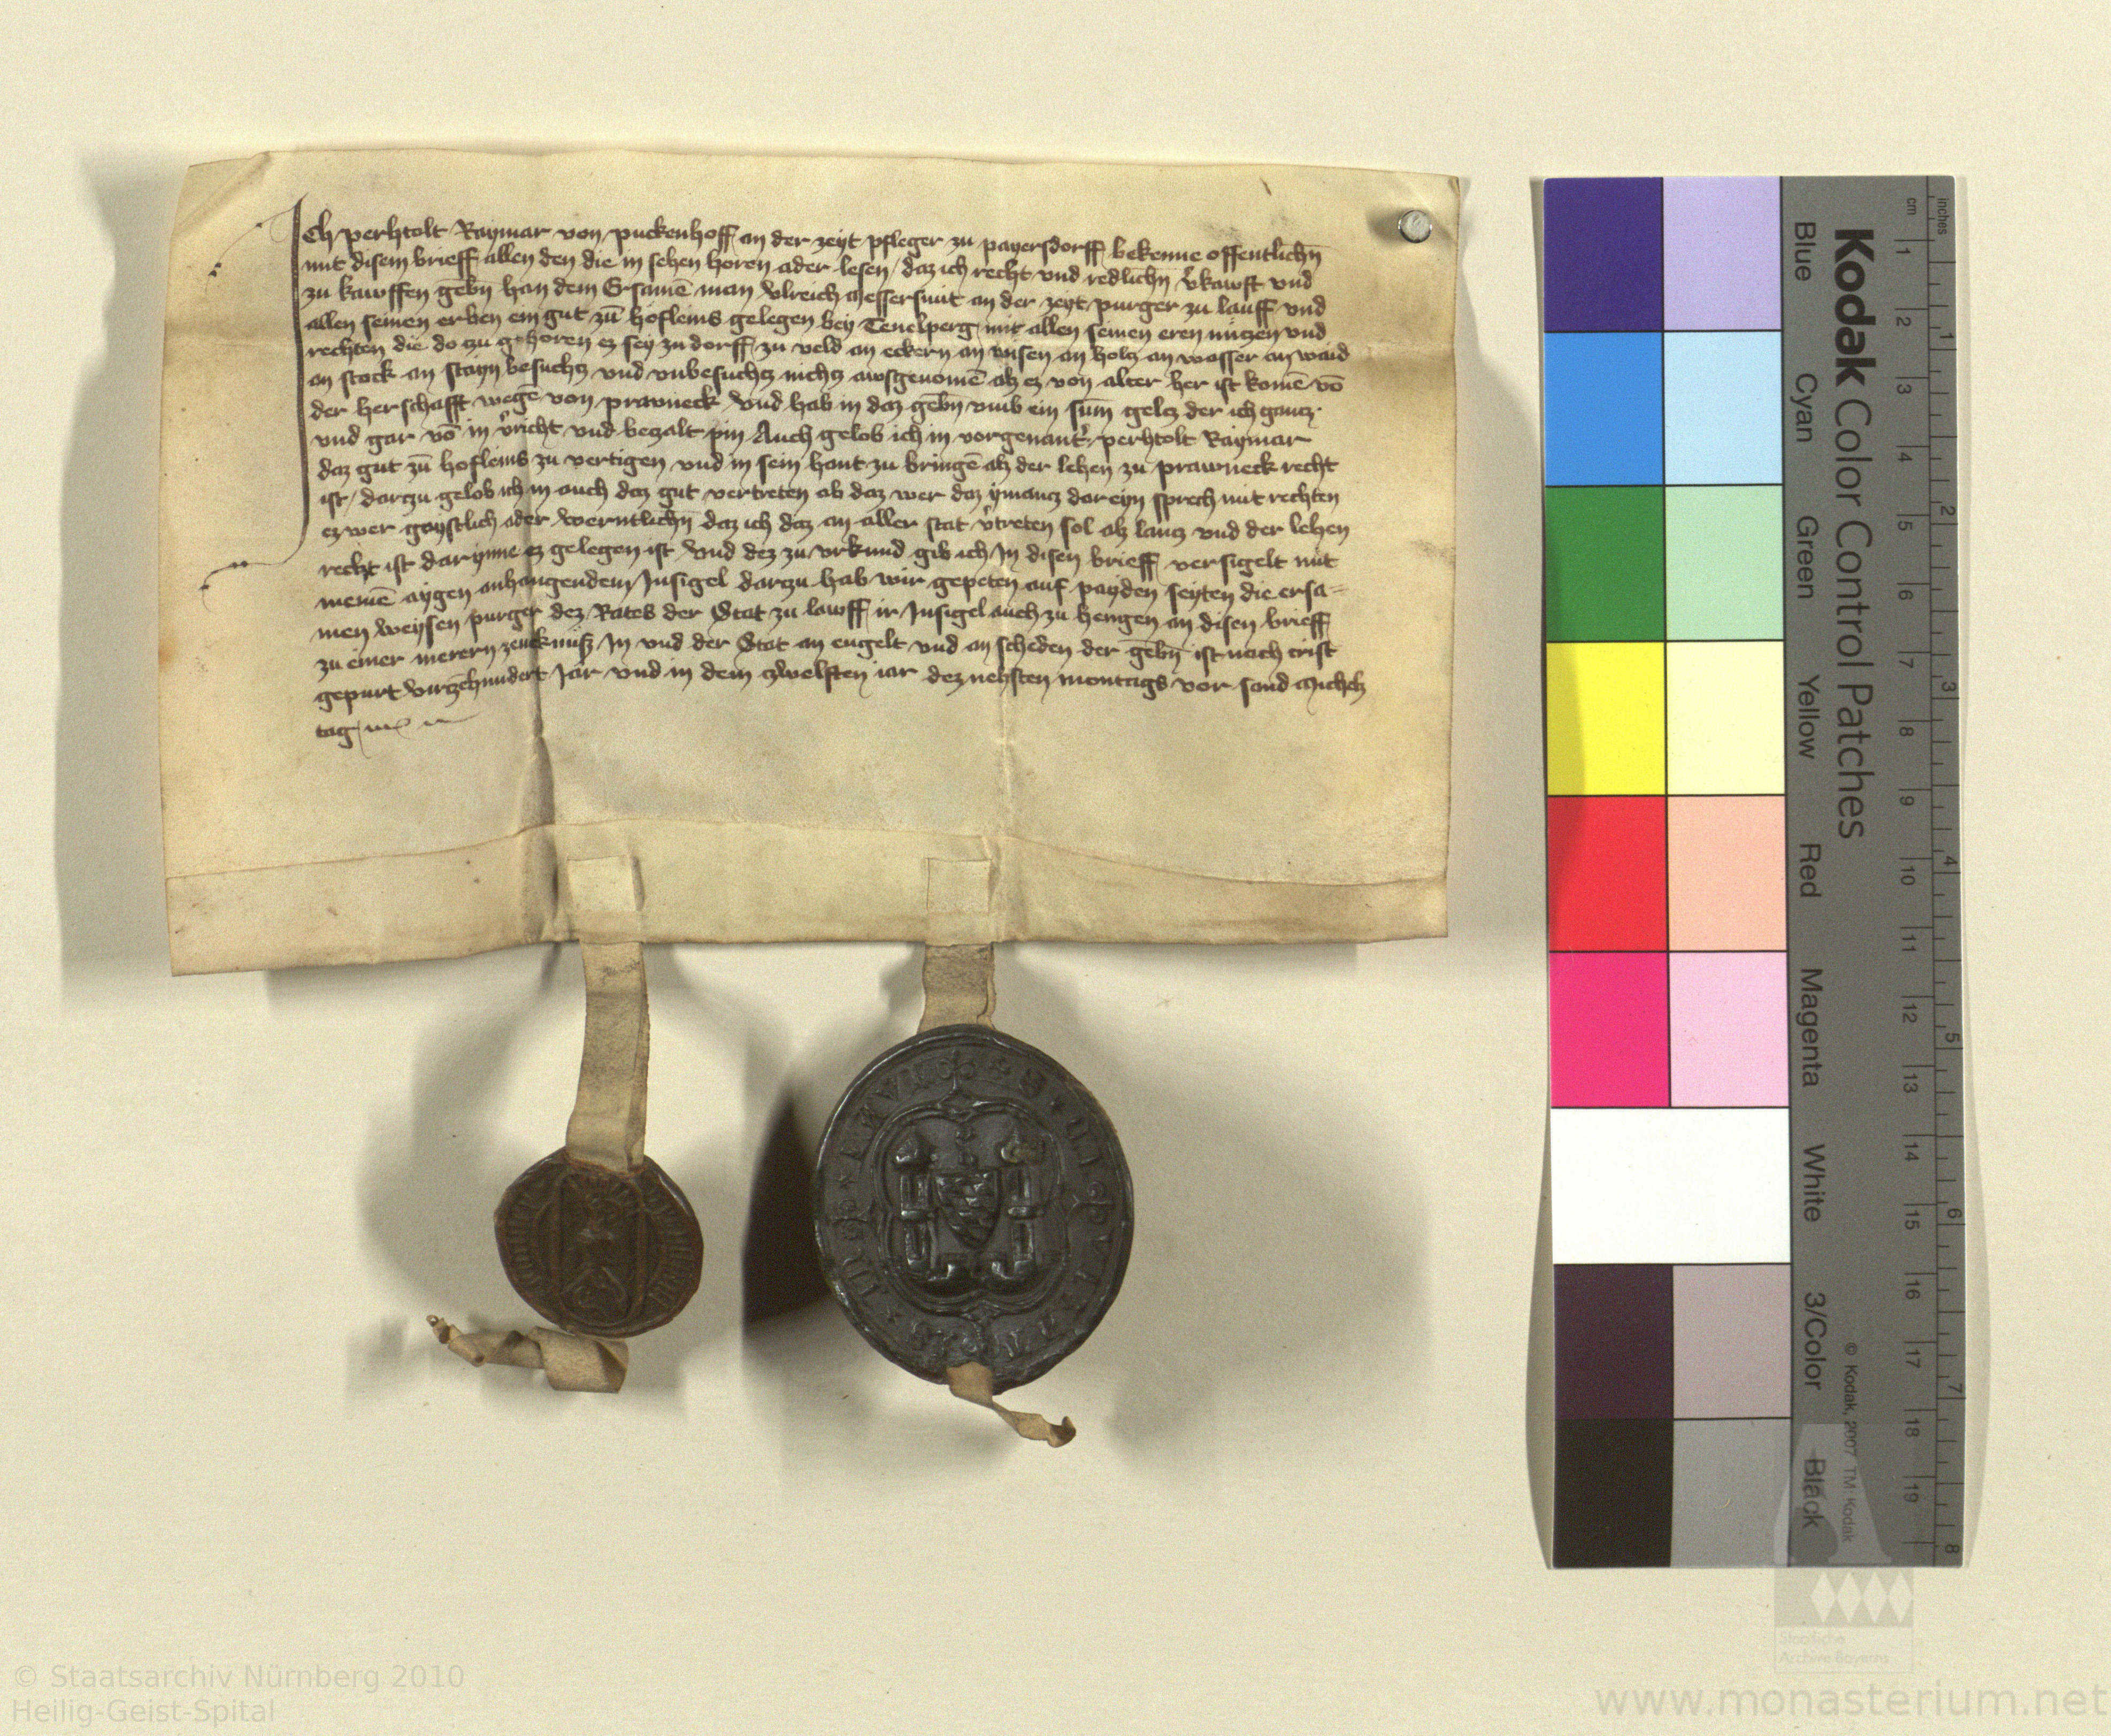 Ich perhtolt Raymar von puckenhoff an der zeyt pfleger zu payersdorff bekenne offentlichn̄
mit disem brieff allen den die in sehen horen ader lesen / daz ich recht und redlichn̄ v̓kawft und
zu kawffen gebn han dem Ersamē man Vlreich messersmit an der zeyt purger zu lauff und
allen seinen erben ein gut zū hofleins gelegen bey Tenelperg mit allen seinen eren nützen und
rechten die do zu gehoren ez sey zu dorff zu veld an eckern an wisen an holtz an wasser an waid
an stock an stayn besuchtz und vnbesuchtz nichtz awsgenomē alz ez von alter her ist komē vō
der herschafft wegē von prawneck Vnd hab in daz gebn̄ vmb ein sūm geltz der ich gantz
und gar vō in v̓richt und bezalt pin Auch gelob ich in vorgenant̓ perhtolt Raymar
daz gut zū hofleins zu vertigen und in sein hant zu bringē alz der lehen zu prawneck recht
ist / dartzu gelob ich in auch daz gut vertreten ob daz wer daz ymantz dareyn sprech mit rechten
ez wer gaystlich ader werntlichn̄ daz ich daz an aller stat v̓treten sol alz lantz und der lehen
recht ist darynne ez gelegen ist Vnd dez zu vrkund gib ich In disen brieff versigelt mit
meinē aygen anhangendem Insigel dartzu hab wir gepeten auf payden seyten die ersa=
men weysen purger dez Rates der Stat zu lawff ir Insigel auch zu hengen an disen brieff
zu einer merern zeucknüß In und der Stat an engelt und an scheden der gebn̄ ist nach crist
gepurt virtzehundert Jar und in dem zwelften iar dez nehsten montags vor sand Michelz
tag
Kodak Color Control Patches
Blue Cyan Green Yellow Red Magenta White 3/Color Black
© Kodak, 2007 TM: Kodak
cm 1 2 3 4 5 6 7 8 9 10 11 12 13 14 15 16 17 18 19
inches 1 2 3 4 5 6 7 8
Staatliche
Archive Bayerns
© Staatsarchiv Nürnberg 2010
Heilig-Geist-Spital
www.monasterium.net